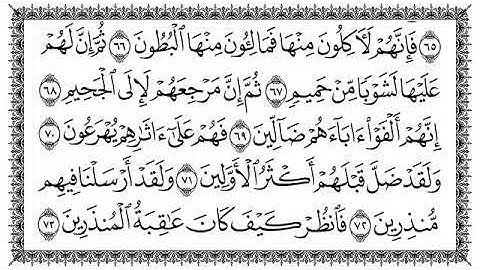 ٦٥ فَإِنَّهُمْ لَأَكِلُونَ مِنْهَا فَمَالِـُٔونَ مِنْهَا ٱلْبُطُونَ ٦٦ ثُمَّ إِنَّ لَهُمْ
عَلَيْهَا لَشَوْبًا مِّنْ حَمِيمٍ ٦٧ ثُمَّ إِنَّ مَرْجِعَهُمْ لَإِلَى ٱلْجَحِيمِ ٦٨
إِنَّهُمْ أَلْفَوْا۟ ءَابَآءَهُمْ ضَآلِّينَ ٦٩ فَهُمْ عَلَىٰٓ ءَاثَٰرِهِمْ يُهْرَعُونَ ٧٠
وَلَقَدْ ضَلَّ قَبْلَهُمْ أَكْثَرُ ٱلْأَوَّلِينَ ٧١ وَلَقَدْ أَرْسَلْنَا فِيهِم
مُّنذِرِينَ ٧٢ فَٱنظُرْ كَيْفَ كَانَ عَٰقِبَةُ ٱلْمُنذَرِينَ ٧٣